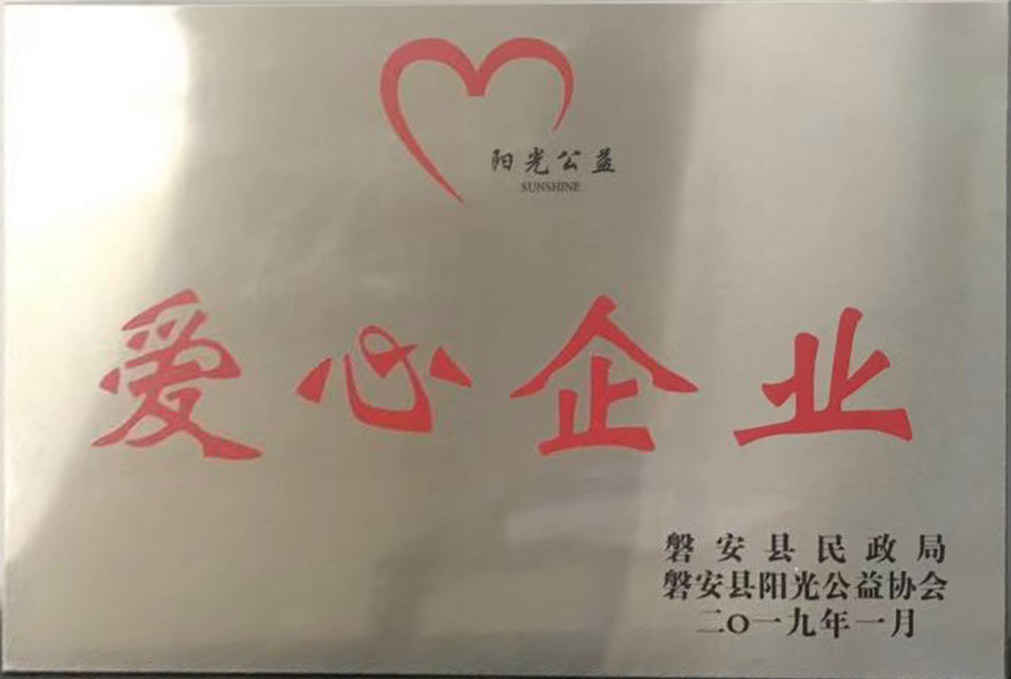 阳光公益
SUNSHINE
爱心企业
磐安县民政局
磐安县阳光公益协会
二〇一九年一月